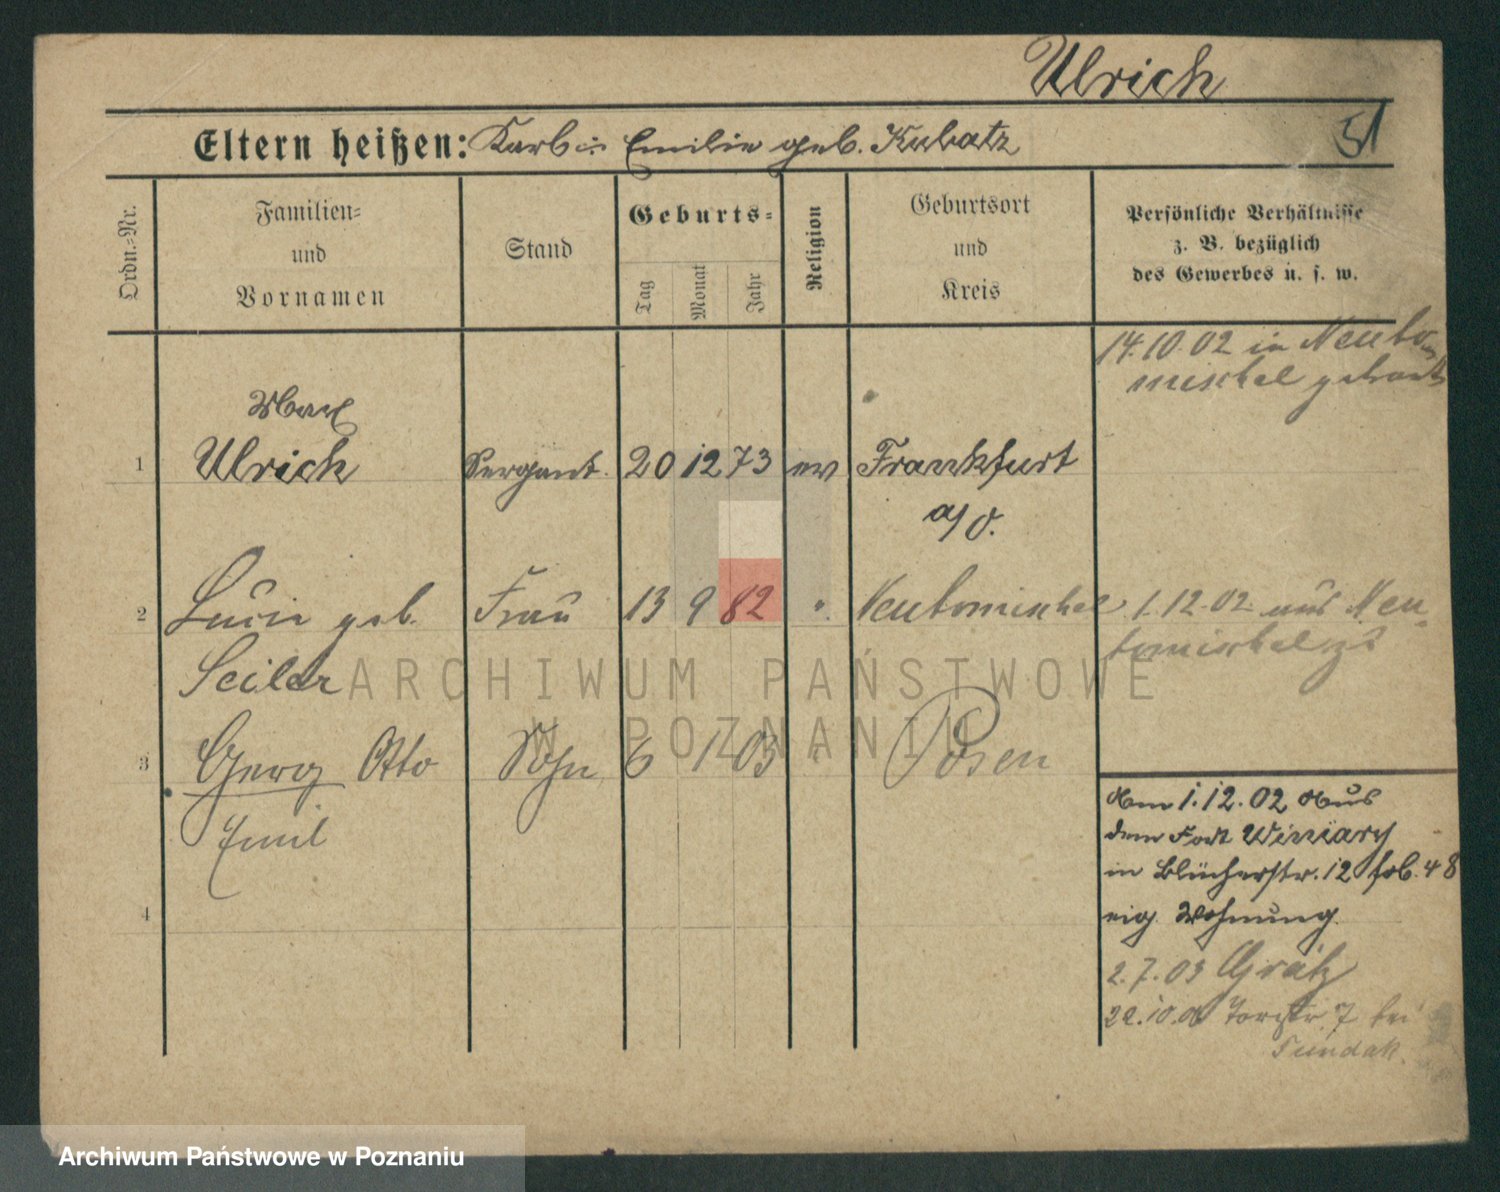 Ulrich
51
Eltern heißen: Karl u. Emilie geb. Kubatz
Ordn.=Nr.
Familien=
und
Vornamen
Stand
Geburts=
Tag
Monat
Jahr
Religion
Geburtsort
und
Kreis
Persönliche Verhältnisse
z. B. bezüglich
des Gewerbes u. s. w.
14.10.02 in Neuto-
mischel getraut
Max
1 Ulrich Sergant. 20 12 73 ev Frankfurt
a/O.
2 Lucie geb. Frau 13 9 82 ". Neutomischel 1.12.02 aus Neu-
tomischel
Seiler
3 Georg Otto Sohn 6 1 03 " Posen
Emil
4
Am 1.12.02 aus
dem Fort Winiary
in Blücherstr. 12
eig. Wohnung.
2.7.03 Grätz
7 bei
ARCHIWUM PAŃSTWOWE
W POZNANIU
Archiwum Państwowe w Poznaniu